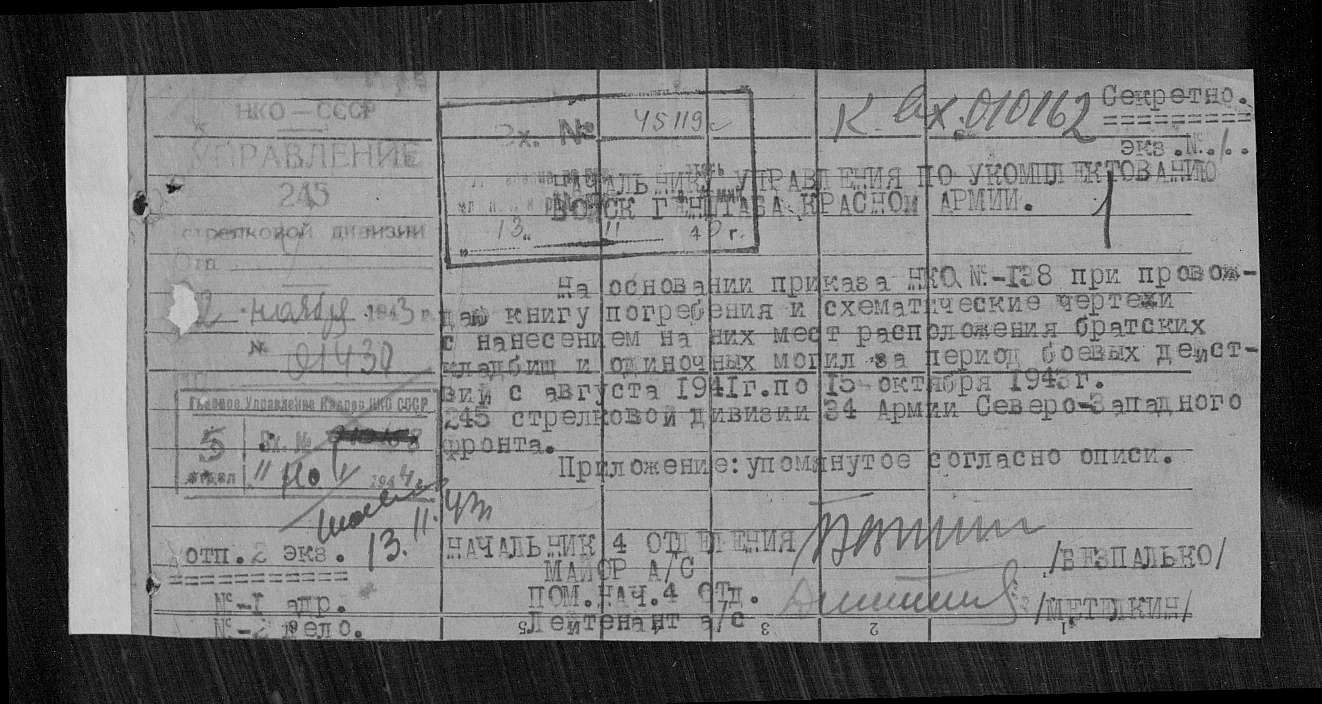 НКО - СССР
УПРАВЛЕНИЕ
245
стрелковой дивизии
2 ноября 1943 г.
№ 01430
Главное Управление Кадров НКО СССР
5 отдел
Вх. №
1944 г.
13.11.43
отп. 2 экз.
№-1 адр.
№-2 дело.
Вх. № 45119с
13 11 43 г.
К вх. 010162
Секретно.
экз. №.1.
НАЧАЛЬНИКУ УПРАВЛЕНИЯ ПО УКОМПЛЕКТОВАНИЮ
ВОЙСК ГЕНШТАБА КРАСНОЙ АРМИИ.
1
На основании приказа НКО №-138 при провож-
даю книгу погребения и схематические чертежи
с нанесением на них мест расположения братских
кладбищ и одиночных могил за период боевых дейст-
вий с августа 1941г. по 15 октября 1943г.
245 стрелковой дивизии 34 Армии Северо-Западного
фронта.
Приложение: упомянутое согласно описи.
НАЧАЛЬНИК 4 ОТДЕЛЕНИЯ
МАЙОР А/С
/БЕЗПАЛЬКО/
ПОМ. НАЧ. 4 ОТД.
Лейтенант а/с
/МЕТЕЛКИН/
5 3 2 1